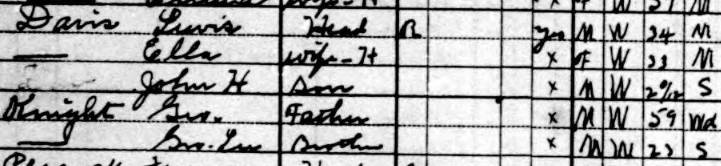 wife-H x F W 27 M
Davis Lewis Head R Yes M W 34 M
— Ella wife-H x F W 33 M
John H Son x M W 2 9/12 S
Knight Geo. Father x M W 59 Wd
— Geo. Lee Brother x M W 23 S